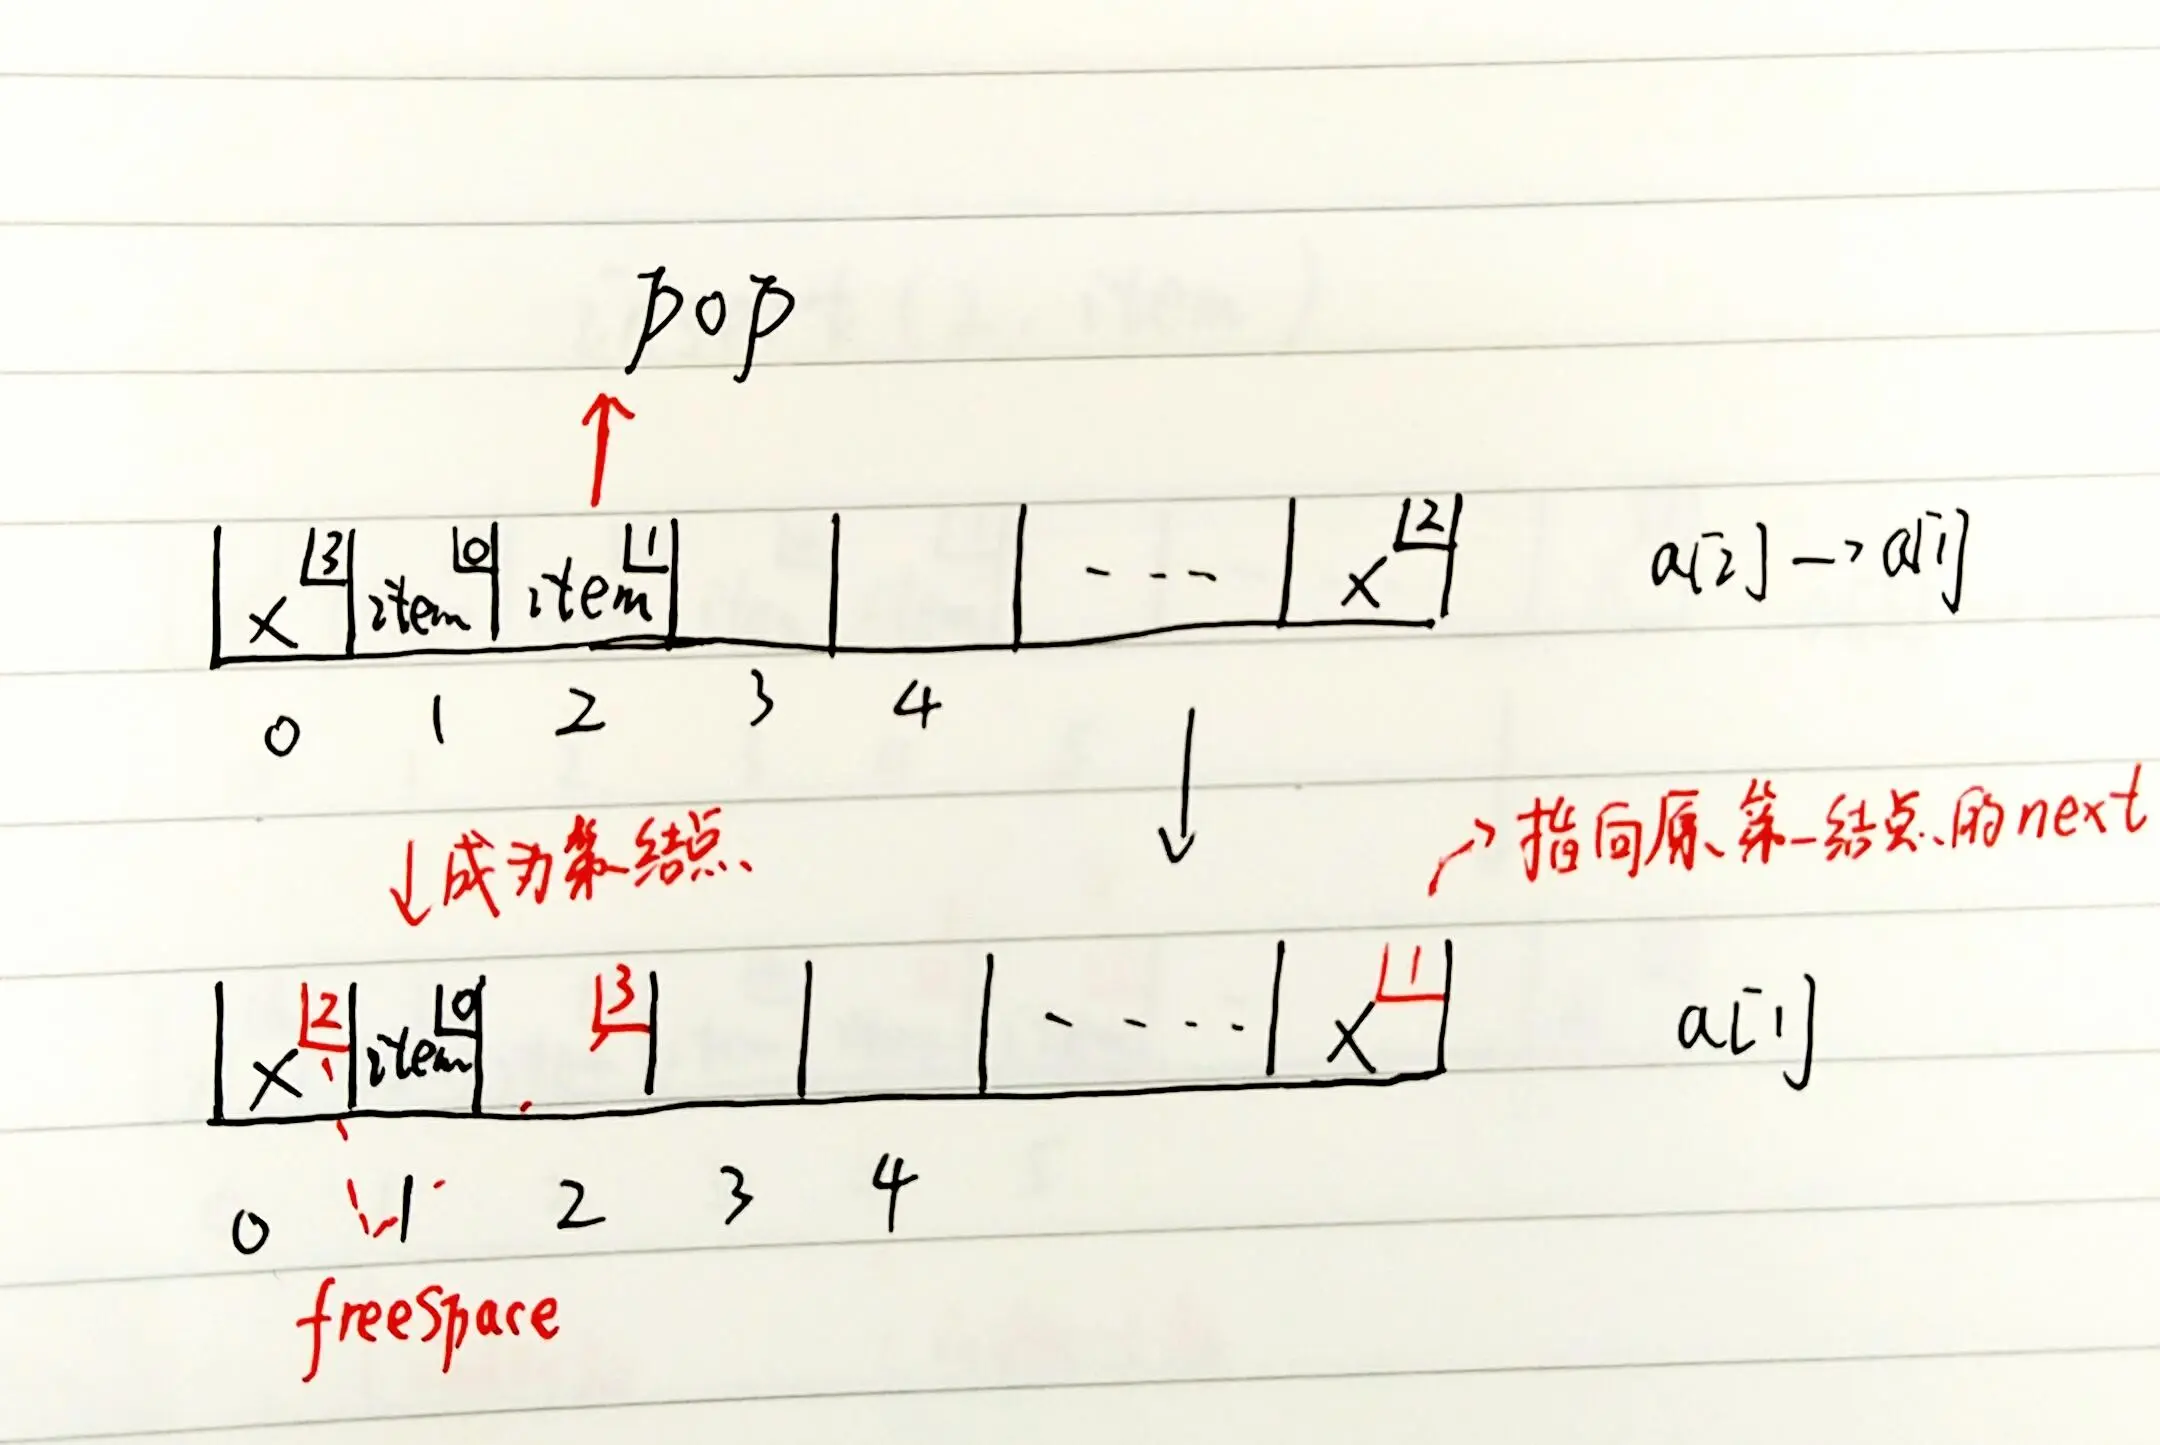 pop
3 0 1 2
x item item - - - x a[2] → a[1]
0 1 2 3 4
成为第一结点
指向原第一结点的next
2 0 3 1
x item - - - - x a[1]
0 1 2 3 4
freeSpace